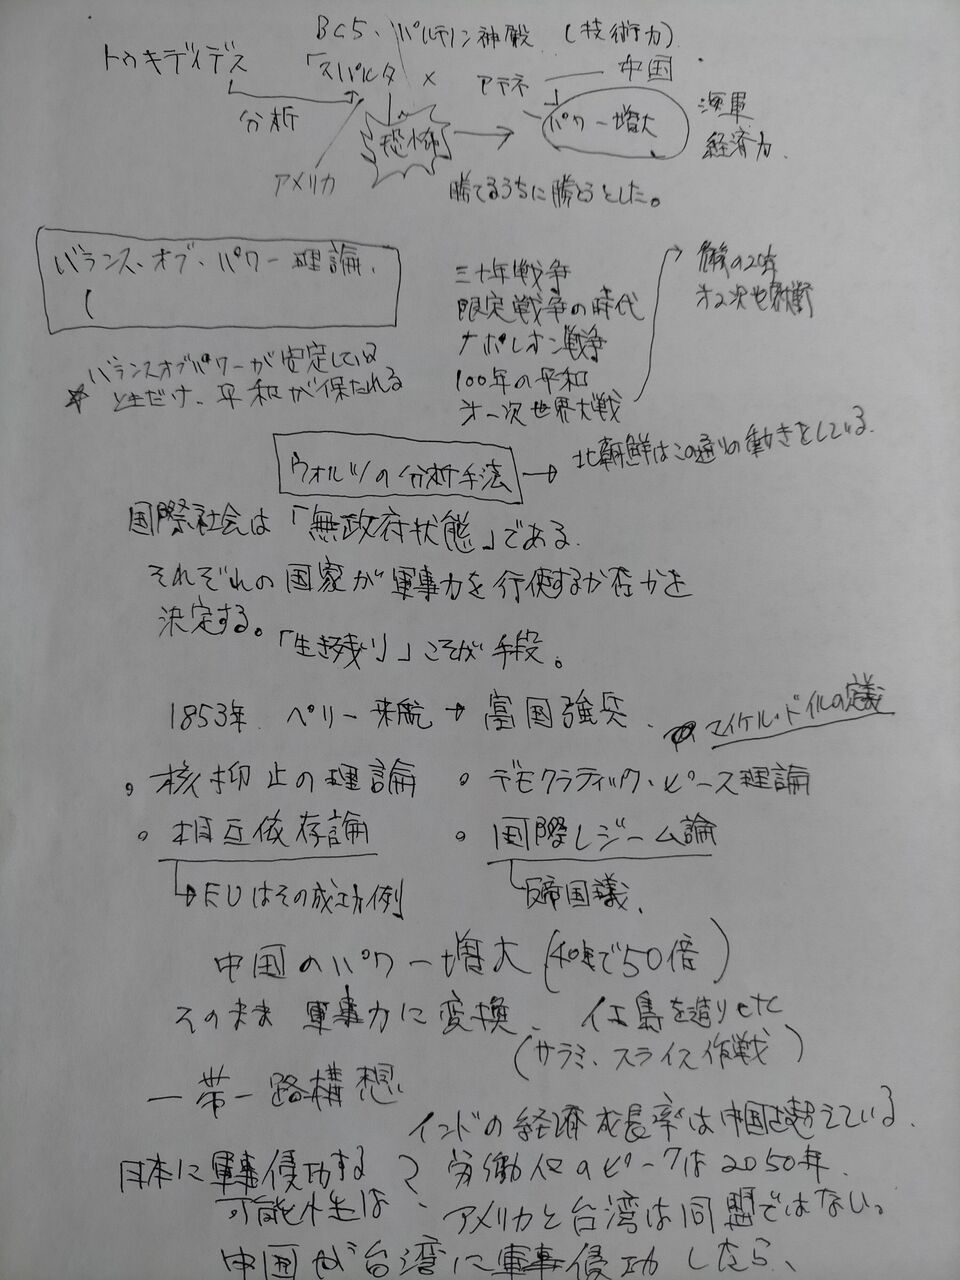 BC5、パルテノン神殿 (技術力)
トゥキディデス 「スパルタ × アテネ 中国
分析 恐怖 パワー増大 海軍
経済力
アメリカ 勝てるうちに勝とうとした。
バランス、オブ、パワー理論、
三十年戦争
限定戦争の時代
ナポレオン戦争
100年の平和
オ一次世界大戦
危機の20年
オ2次世界大戦
バランスオブパワーが安定している
ときだけ、平和が保たれる
ウオルツの分析手法 → 北朝鮮はこの通りの動きをしている.
国際社会は「無政府状態」である.
それぞれの国家が軍事力を行使するか否かを
決定する。
「生き残り」こそが手段。
1853年 ペリー来航 → 富国強兵
マイケル・ドイルの定義
・核抑止の理論 ・デモクラティック・ピース理論
・相互依存論 ・国際レジーム論
EUはその成功例 反帝国議、
中国のパワー増大 (40年で50倍)
そのまま軍事力に変換、 島を造りetc
(サラミ、スライス作戦)
一帯一路構想
インドの経済成長率は中国を超えている.
日本に軍事侵功する
可能性は?
労働人口のピークは2050年.
アメリカと台湾は同盟ではない。
中国が台湾に軍事侵功したら、